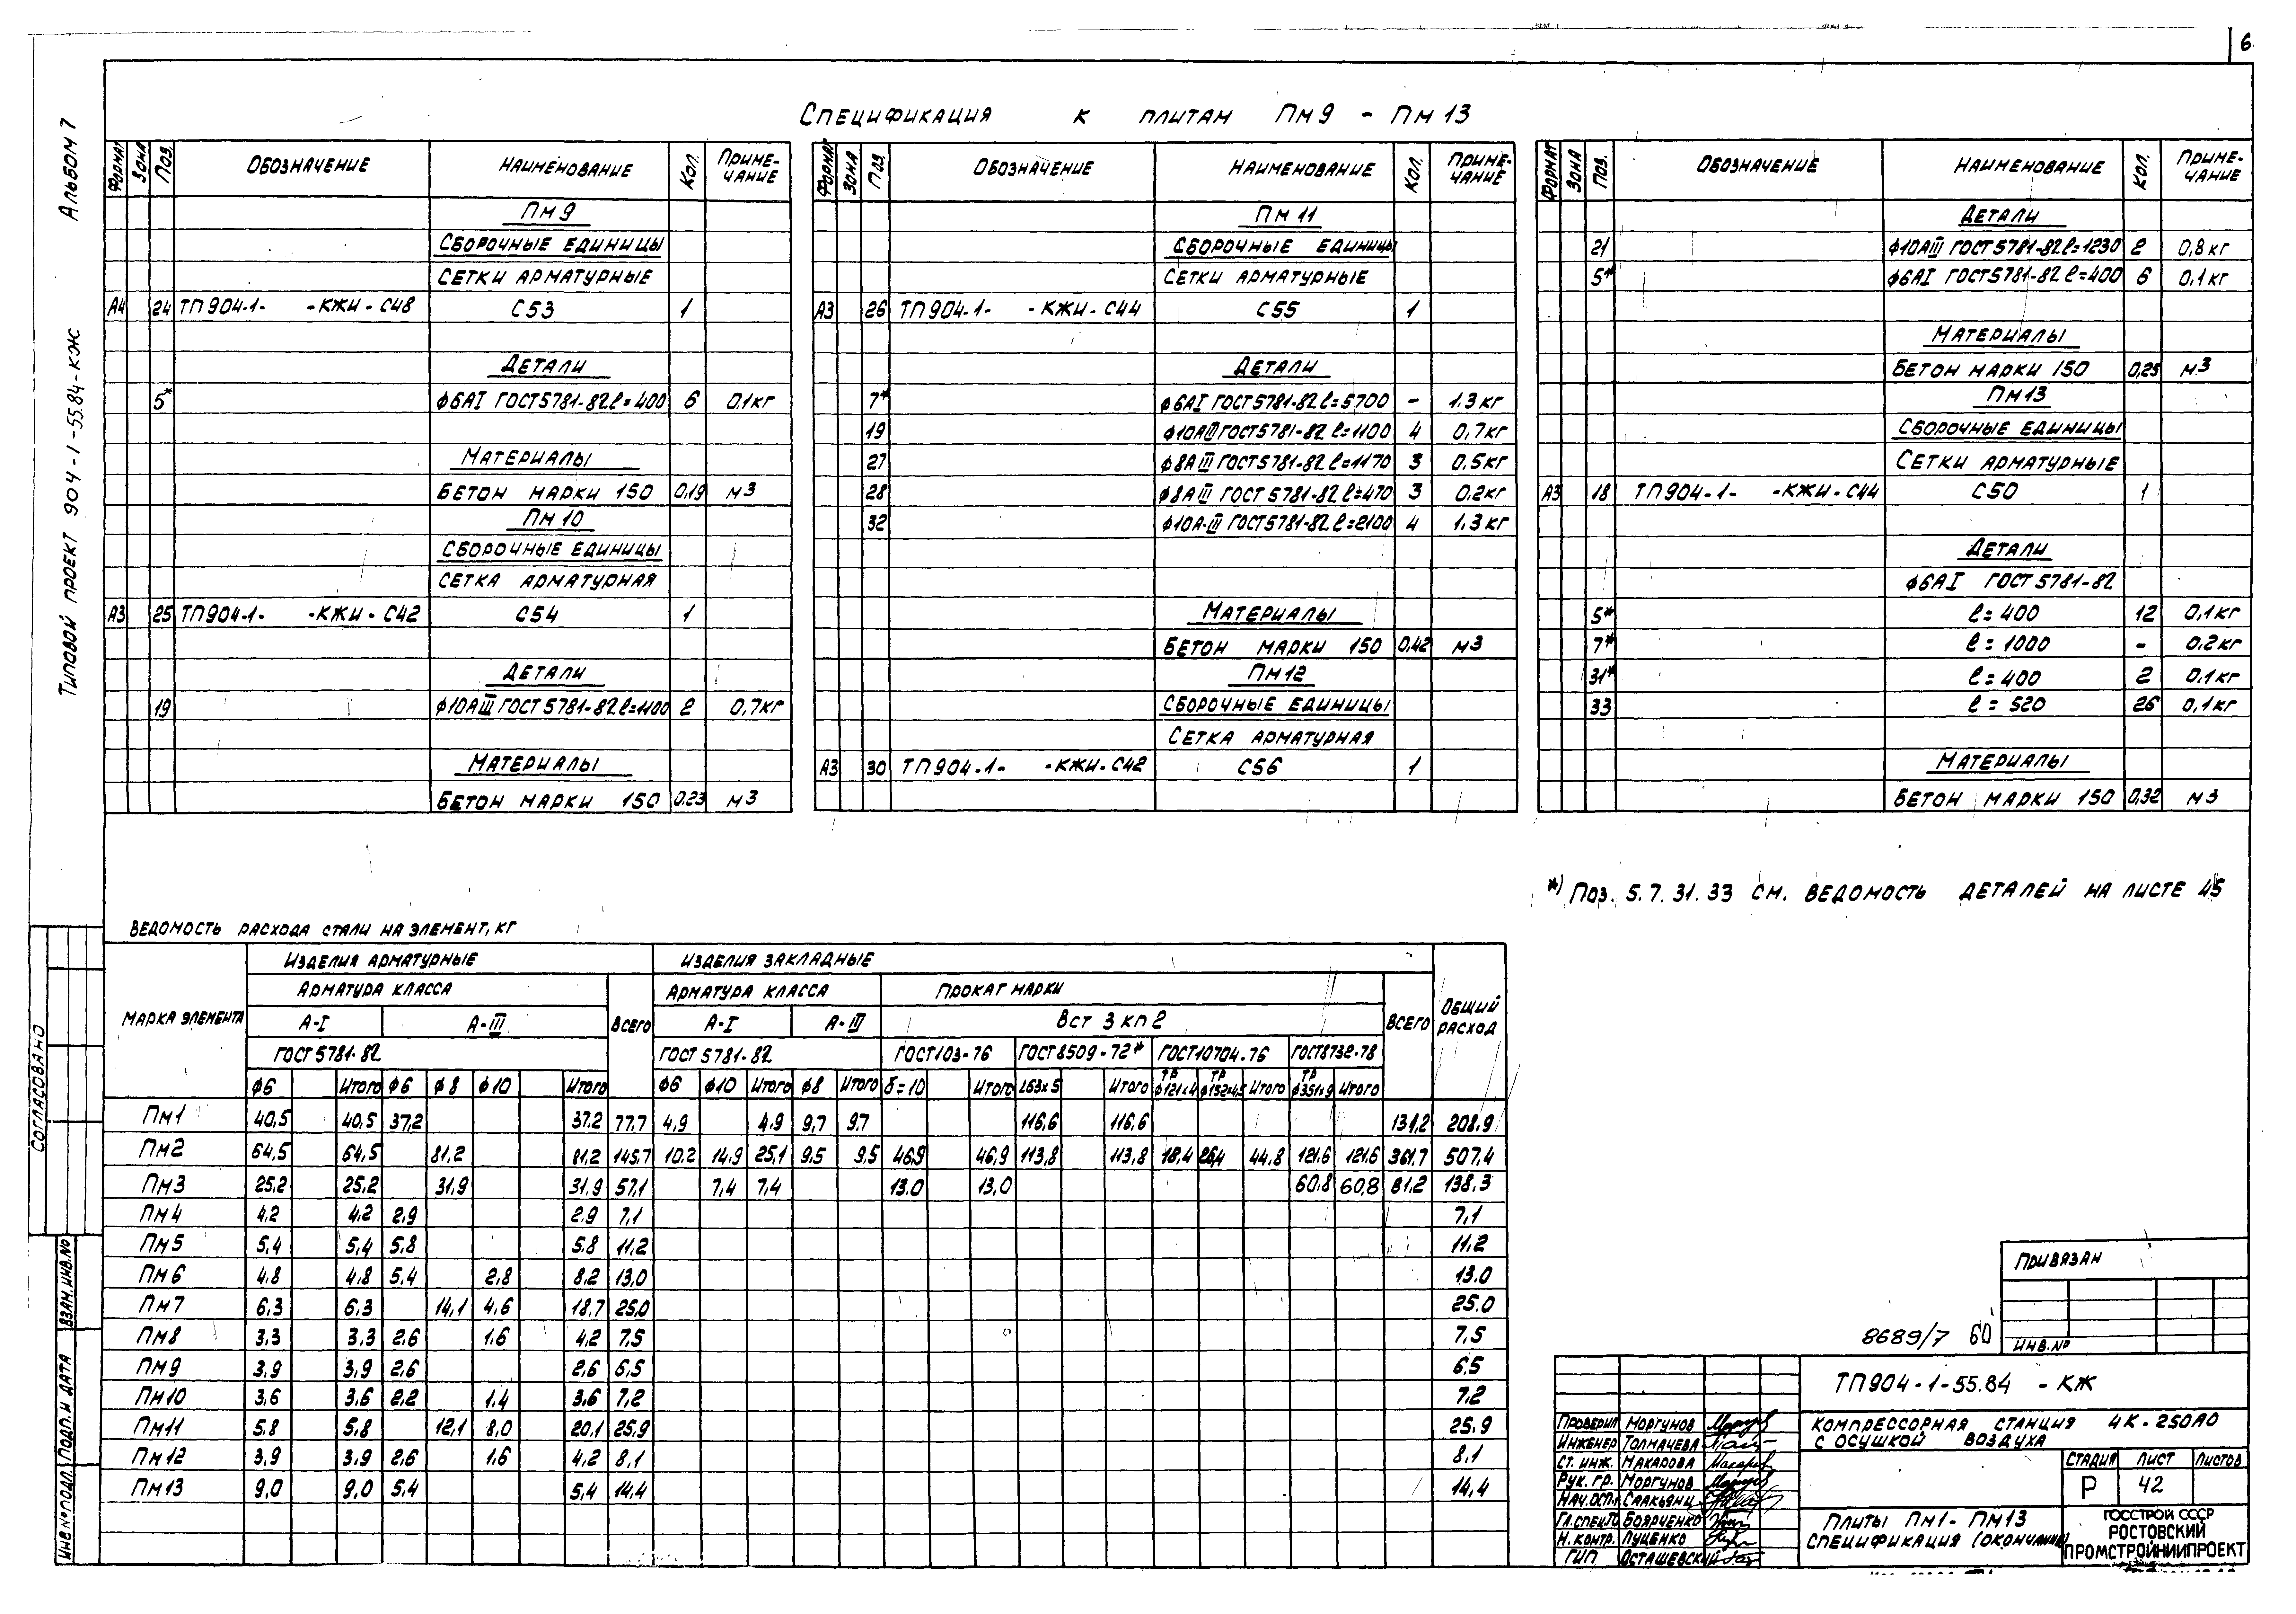 6
Альбом 7
Типовой проект 904-1-55.84-КЖ
Спецификация к плитам Пм9 - Пм13
Формат Зона Поз. Обозначение Наименование Кол. Приме-чание
Пм9
Сборочные единицы
Сетки арматурные
А4 24 ТП904-1- -КЖИ-С48 С53 1
Детали
5* ф6АI ГОСТ5781-82 l=400 6 0,1кг
Материалы
Бетон марки 150 0,19 м3
Пм10
Сборочные единицы
Сетка арматурная
А3 25 ТП904-1- -КЖИ-С42 С54 1
Детали
19 ф10АIII ГОСТ5781-82 l=1100 2 0,7кг
Материалы
Бетон марки 150 0,23 м3
Формат Зона Поз. Обозначение Наименование Кол. Приме-чание
Пм11
Сборочные единицы
Сетки арматурные
А3 26 ТП904-1- -КЖИ-С44 С55 1
Детали
7* ф6АI ГОСТ5781-82 l=5700 - 1.3кг
19 ф10АIII ГОСТ5781-82 l=1100 4 0,7кг
27 ф8АIII ГОСТ5781-82 l=1170 3 0,5кг
28 ф8АIII ГОСТ5781-82 l=470 3 0.2кг
32 ф10А-III ГОСТ5781-82 l=2100 4 1.3кг
Материалы
Бетон марки 150 0,42 м3
Пм12
Сборочные единицы
Сетка арматурная
А3 30 ТП904-1- -КЖИ-С42 С56 1
Формат Зона Поз. Обозначение Наименование Кол. Приме-чание
Детали
21 ф10АIII ГОСТ5781-82 l=1230 2 0,8кг
5* ф6АI ГОСТ5781-82 l=400 6 0,1кг
Материалы
Бетон марки 150 0,25 м3
Пм13
Сборочные единицы
Сетки арматурные
А3 18 ТП904-1- -КЖИ-С44 С50 1
Детали
ф6АI ГОСТ5781-82
5* l=400 12 0,1кг
7* l=1000 - 0.2кг
31* l=400 2 0.1кг
33 l=520 26 0,1кг
Материалы
Бетон марки 150 0,32 м3
*) Поз. 5.7.31.33 см. ведомость деталей на листе 45
Ведомость расхода стали на элемент, кг
Марка элемента Изделия арматурные Изделия закладные Общий расход
Арматура класса Всего Арматура класса Прокат марки Всего
А-I А-III А-I А-III Вст 3 кп 2
ГОСТ5781-82 ГОСТ5781-82 ГОСТ103-76 ГОСТ8509-72* ГОСТ10704-76 ГОСТ8732-78
ф6 Итого ф6 ф8 ф10 Итого ф6 ф10 Итого ф8 Итого δ=10 Итого L63х5 Итого Тр ф121х4 Тр ф152х4,5 Итого Тр ф351х9 Итого
Пм1 40,5 40,5 37,2 37,2 77,7 4,9 4,9 9,7 9.7 116,6 116,6 131,2 208,9
Пм2 64,5 64,5 81,2 81,2 145,7 10.2 14,9 25,1 9,5 9,5 46,9 46,9 113,8 113,8 18,4 26,4 44,8 121,6 121,6 361,7 507,4
Пм3 25,2 25,2 31,9 31,9 57,1 7,4 7,4 13.0 13,0 60,8 60,8 81,2 138,3
Пм4 4,2 4,2 2,9 2,9 7,1 7,1
Пм5 5,4 5,4 5,8 5,8 11,2 11,2
Пм6 4,8 4,8 5,4 2,8 8,2 13,0 13.0
Пм7 6,3 6,3 14,1 4,6 18,7 25,0 25.0
Пм8 3,3 3,3 2,6 1,6 4,2 7,5 7,5
Пм9 3,9 3,9 2,6 2,6 6,5 6,5
Пм10 3,6 3,6 2,2 1,4 3,6 7,2 7,2
Пм11 5,8 5,8 12,1 8,0 20,1 25,9 25,9
Пм12 3,9 3,9 2,6 1,6 4,2 8,1 8,1
Пм13 9,0 9,0 5,4 5,4 14,4 14,4
Согласовано
Взам. инв.№
Подп. и дата
Инв №подл.
Привязан
Инв.№
8689/7 60
ТП904-1-55.84 -КЖ
Компрессорная станция 4К-250А0
с осушкой воздуха
Проверил Моргунов
Инженер Толмачева
Ст. инж. Макарова
Рук. гр. Моргунов
Нач.осп.1 Саакьянц
Гл.спец.ТО Боярченко
Н.контр. Луценко
ГИП Осташевский
Стадия Лист Листов
Р 42
Плиты Пм1-Пм13
Спецификация (окончание)
ГОССТРОЙ СССР
РОСТОВСКИЙ
ПРОМСТРОЙНИИПРОЕКТ